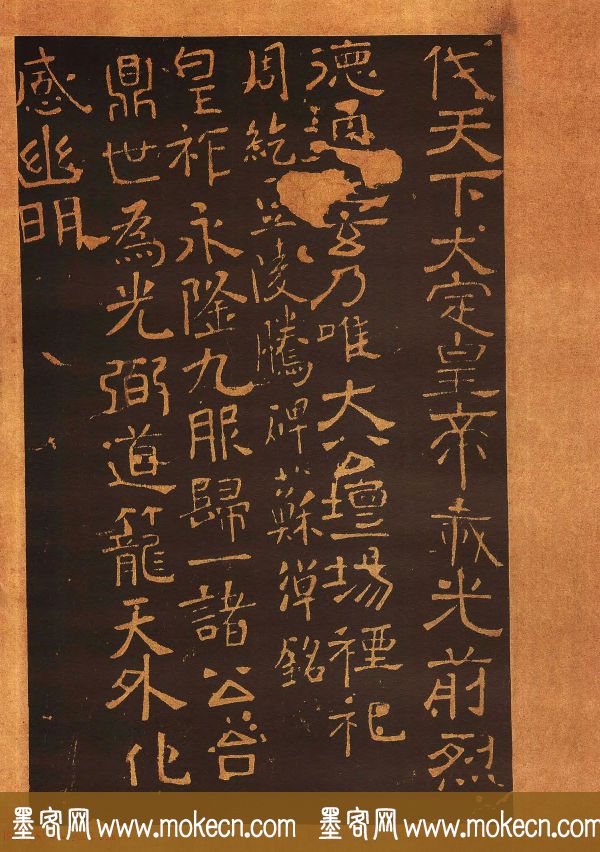 伐天下大定皇帝赤光前烈
德通乃唯大壇場禋祀
周紇豆陵騰碑蘇銘
皇祚永隆九服歸一諸公
鼎世為光弼道籠天外化
感幽明
墨客网 www.mokecn.com 墨客网 www.mokecn.com